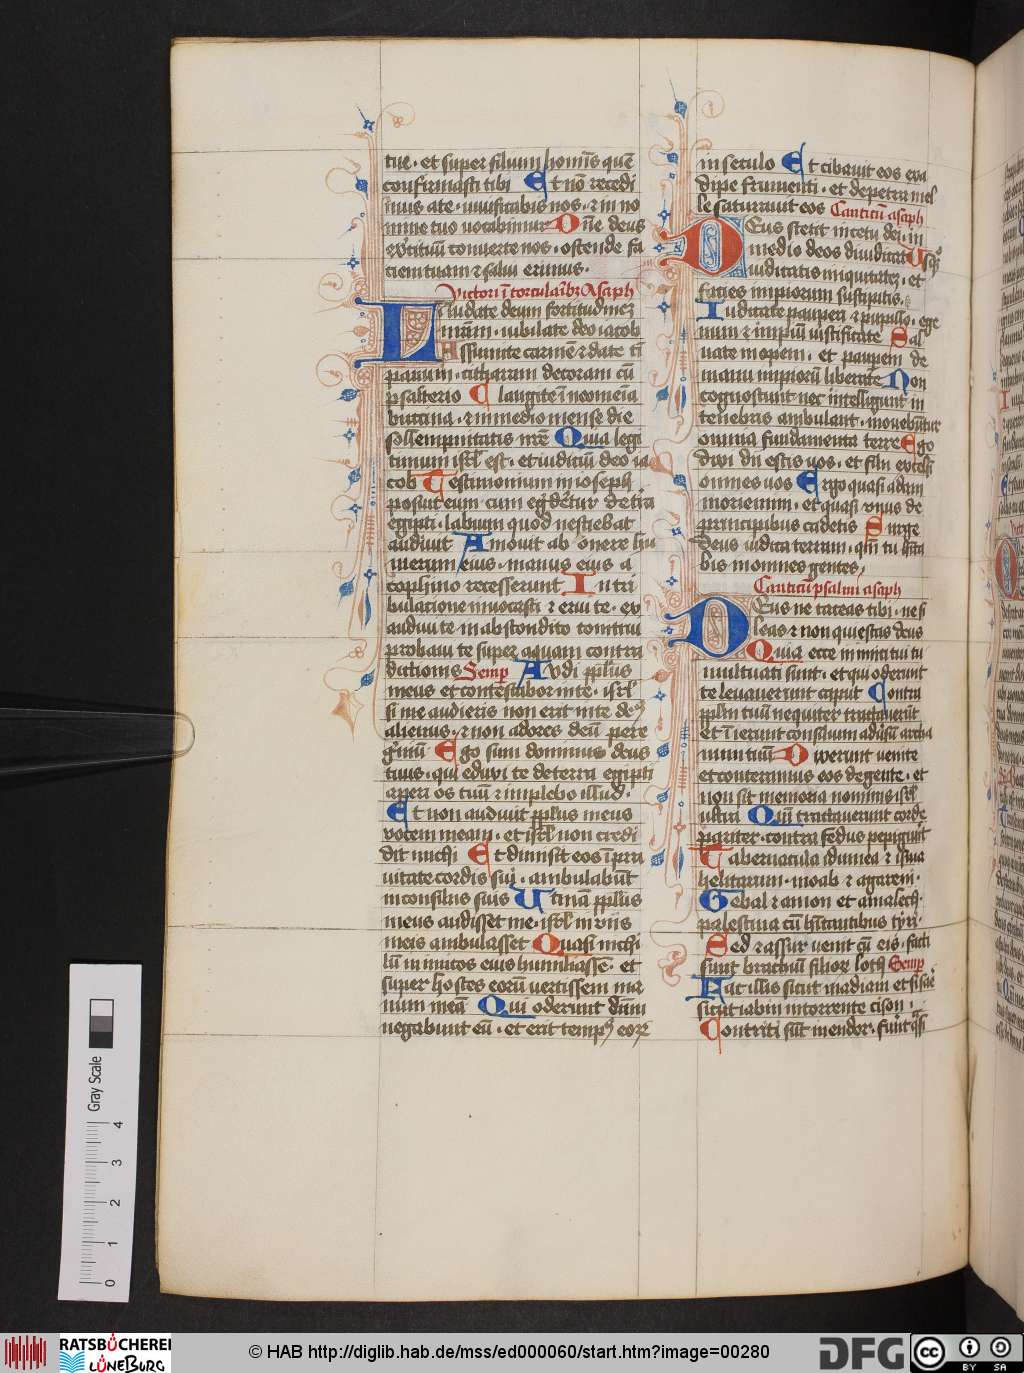 tue · et super filium hominis quē
confirmasti tibi Et nō recedi
mus a te · viuificabis nos · et in no
mine tuo vocabimur Dn̄e deus
exercituū conuerte nos · ostende fa
ciem tuam et salui erimus ·
Victori ī torcularibꝫ Asaph
Laudate deum fortitudinē
nr̄am · iubilate deo iacob
Assumite carmen et date ti
panum · citharam decoram cū
psalterio Clangite ī neomēia
buccina · et in medio mense die
sollempnitatis nr̄e Quia legi
timum isrl̄ est · et iudiciū deo ia
cob Testimonium in ioseph
posuit eum cum egrederetur de terra
egipti · labium quod nesciebat
audiuit Amoui ab onere hu
merum eius · manus eius a
cophino recesserunt In tri
bulacione inuocasti et erui te · ex
audiui te in abscondito tonitrui
probaui te super aquam contra
dictionis Semp Audi ppl̄us
meus et contestabor in te · isrl̄
si me audieris non erit in te deus
alienus · et non adores deū pere
grinū Ego sum dominus deus
tuus · qui eduxi te de terra egipti
aperi os tuū et implebo illud ·
Et non audiuit ppl̄us meus
vocem meam · et isrl̄ non credi
dit michi Et dimisit eos ī pra
uitate cordis sui · ambulabūt
in consiliis suis Utinā ppl̄us
meus audisset me · isrl̄ in viis
meis ambulasset Quasi nichi
lū inimicos eius humiliassē · et
super hostes eorū vertissem ma
num meā Qui oderunt dūm
negabunt eū · et erit tempꝰ eoꝝ
in seculo Et cibauit eos exa
dipe frumenti · et de petra mel
le saturauit eos Canticū asaph
Deus stetit in cetu dei · in
medio deos diiudicat Usqꝫ
iudicatis iniquitatē · et
facies impiorum suscipitis ·
Iudicate pauperi et pupillo · ege
num et impiū iustificate Sal
uate inopem · et pauperem de
manu impiorū liberate Non
cognoscunt nec intelligunt in
tenebris ambulant · mouebūtur
omnia fundamenta terre Ego
dixi dii estis vos · et filii excelsi
omnes vos Ergo quasi adam
moriemini · et quasi vnus de
principibus cadetis Surge
deus iudica terram · qm̄ tu h̄ita
bis in omnes gentes ·
Canticū psalmi asaph
Deus ne taceas tibi · ne si
leas et non quiescas deus
Quia ecce inimici tui tu
multuati sunt · et qui oderunt
te leuauerunt caput Contra
pplm̄ tuū nequiter tractauerūt
et ī ierunt consilium aduersū archa
num tuū Dixerunt venite
et conteramus eos de gente · et
non sit memoria nominis isrl̄
ultra Qm̄ tractauerunt corde
pariter · contra te fedus pepigerūt
Tabernacula idumea et isma
helitarum · moab et agareni ·
Gebal et amon et amalech ·
palestina cū h̄itantibus tyri ·
Sed et assur venit cū eis · facti
sunt brachiū filioꝝ loth Semp
Fac illis sicut madiam et sisare
sicut iabin in torrente cison ·
Contriti sūt in endor · fuerūt q̄si
Gray Scale
4
3
2
1
0
RATSBÜCHEREI
LÜNEBURG
© HAB http://diglib.hab.de/mss/ed000060/start.htm?image=00280
DFG
cc
BY SA